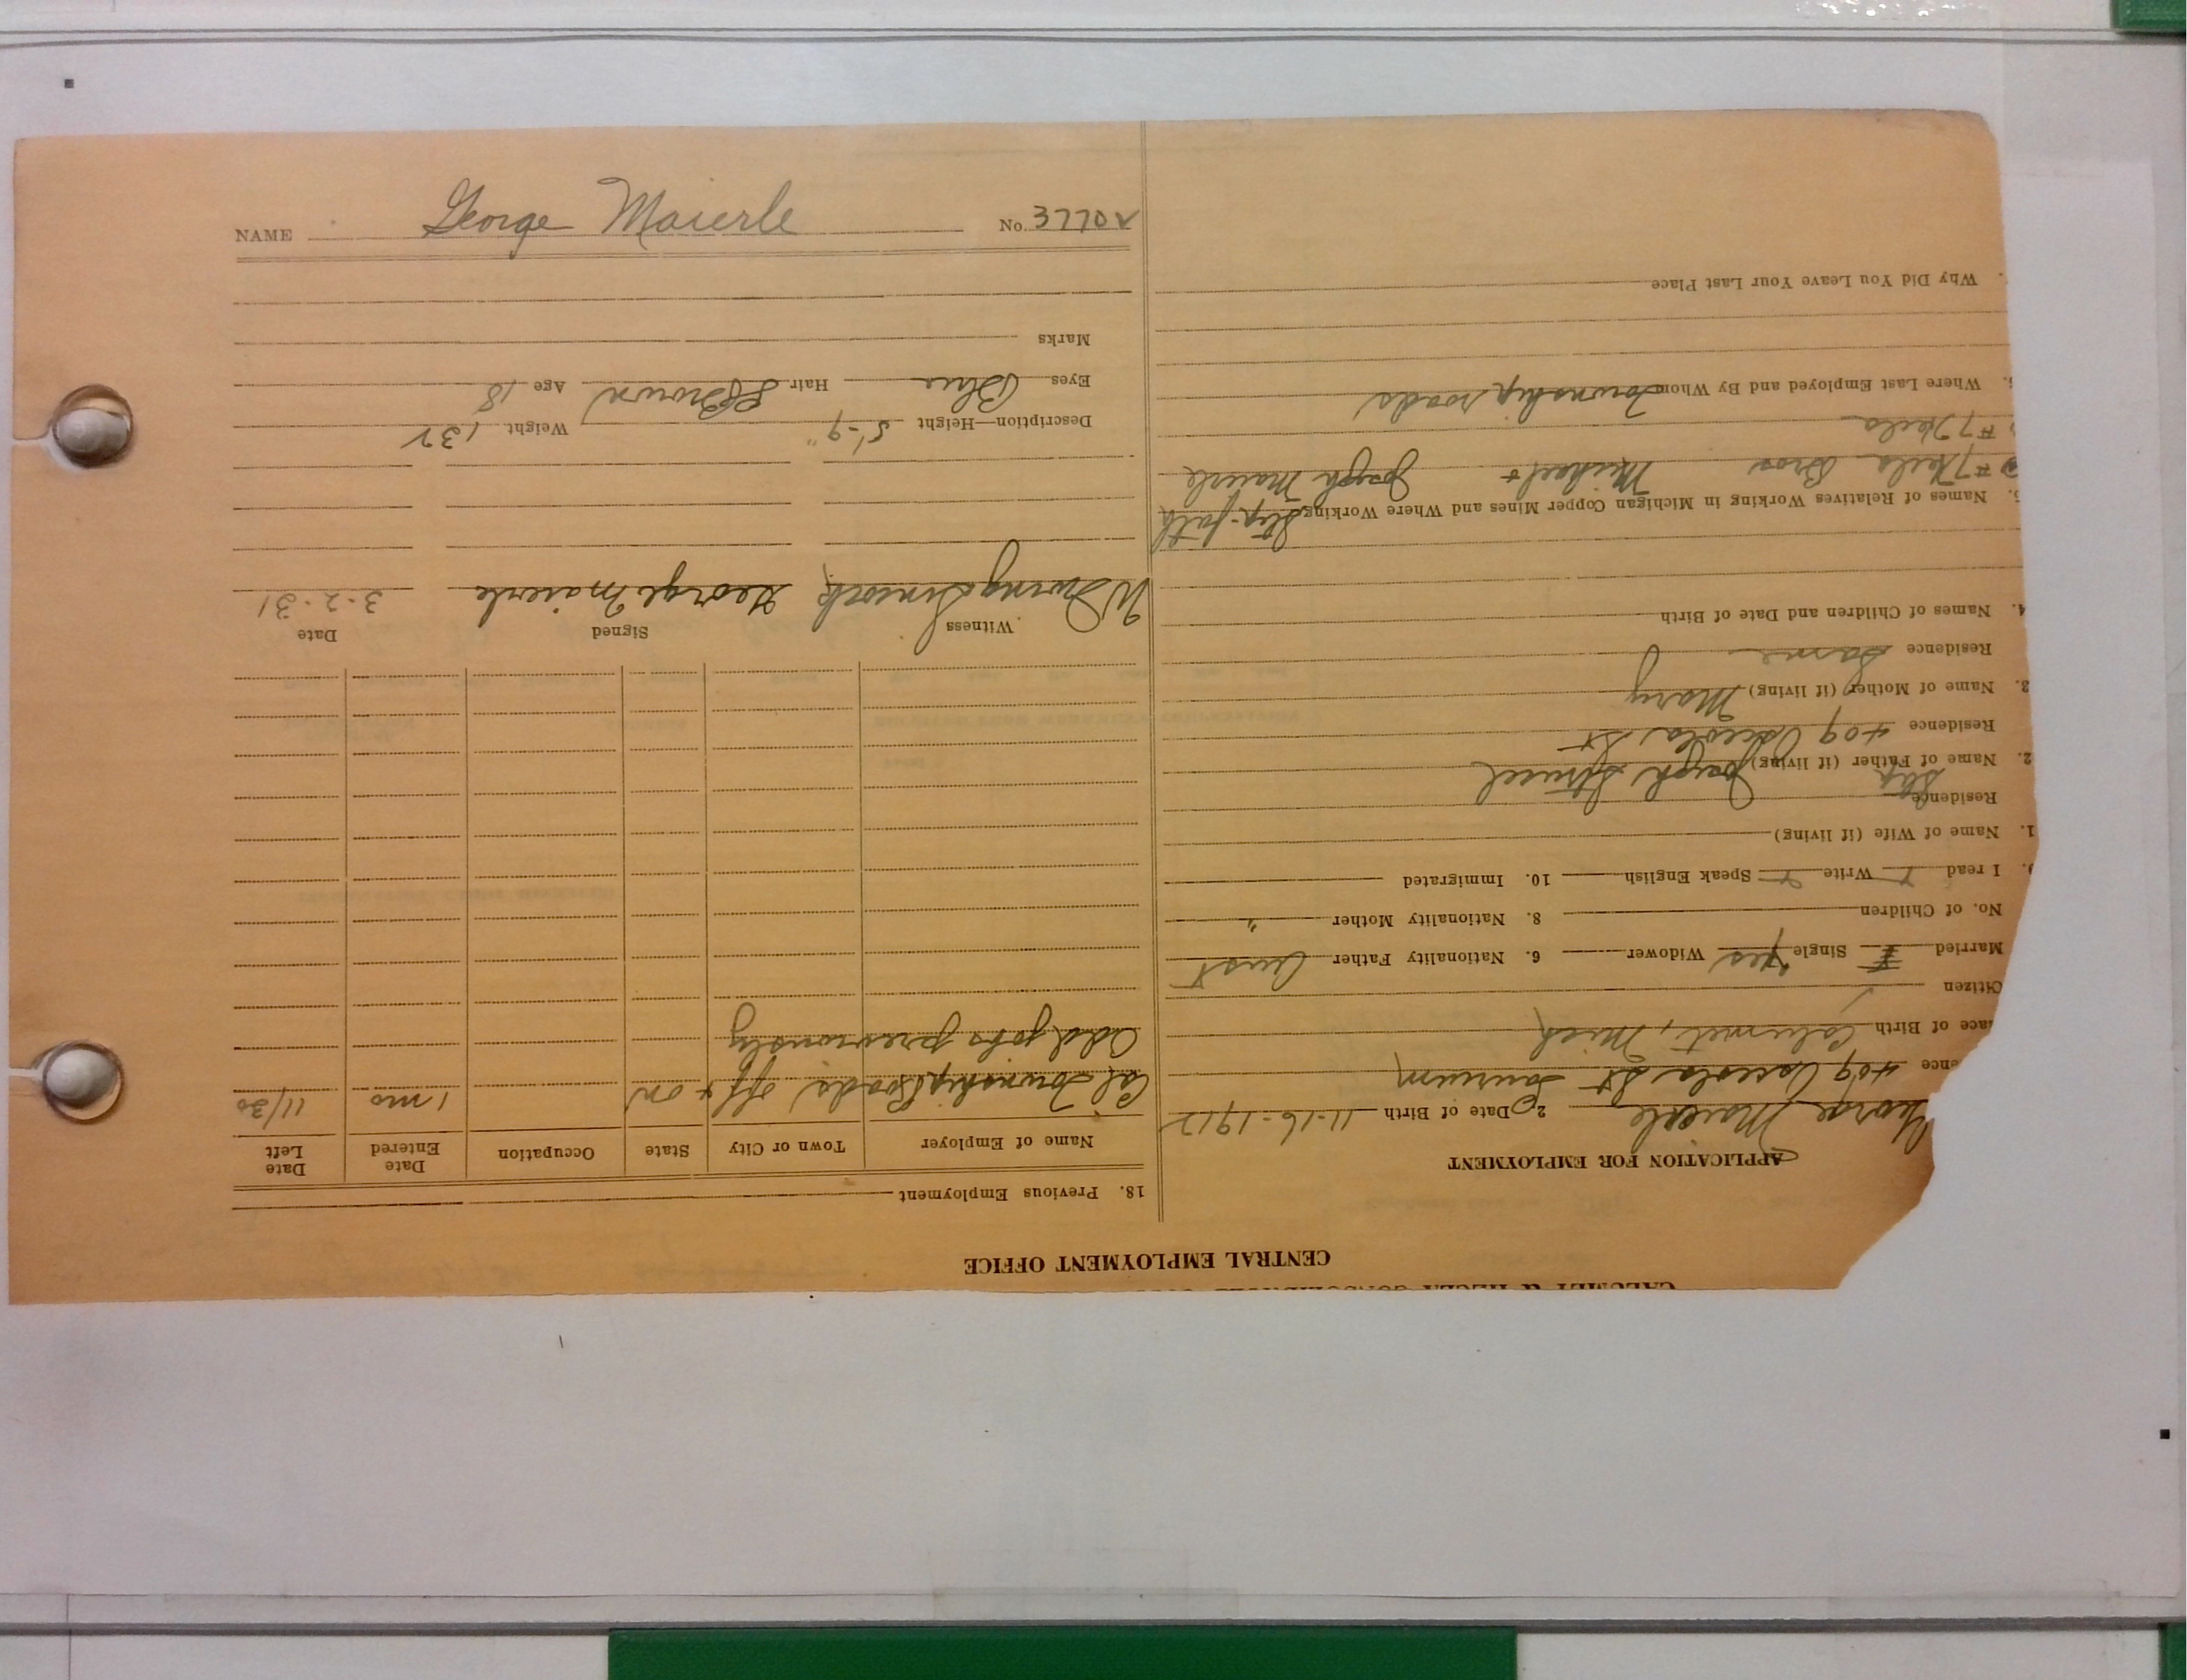 NAME George Maierle No. 37702
CALUMET & HECLA CONSOLIDATED
CENTRAL EMPLOYMENT OFFICE
APPLICATION FOR EMPLOYMENT
George Maierle 2 Date of Birth 11-16-1912
ence 409 Osceola St Laurium
lace of Birth Calumet, Mich
Citizen
Married Single Yes Widower 6. Nationality Father Aust
No. of Children 8. Nationality Mother "
9. I read Y Write Y Speak English 10. Immigrated
1. Name of Wife (if living)
Residence
Step
2. Name of Father (if living) Joseph
Residence 409 Osceola St
3. Name of Mother (if living) Mary
Residence Same
4. Names of Children and Date of Birth
5. Names of Relatives Working in Michigan Copper Mines and Where Working Step-fath
#7 Hecla Bros Michael + Joseph Maierle
#7 Hecla
Where Last Employed and By Whom Township roads
Why Did You Leave Your Last Place
18. Previous Employment
Name of Employer Town or City State Occupation Date Entered Date Left
Cal Township Roads off + on 1 mo 11/30
Odd jobs previously
Witness Signed Date
George Maierle 3-2-31
Description—Height 5'-9" Weight 132
Eyes Blue Hair Brown Age 18
Marks